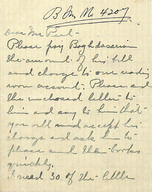 B.M. No 4207
Dear Mr Peet -
Please pay Baghdasarian
the amount of his bill
and charge to our
account. Please and
the enclosed letter to
him and say to him that
you will
charge and ask him to
please send the books
quickly.
I need 30 of the little